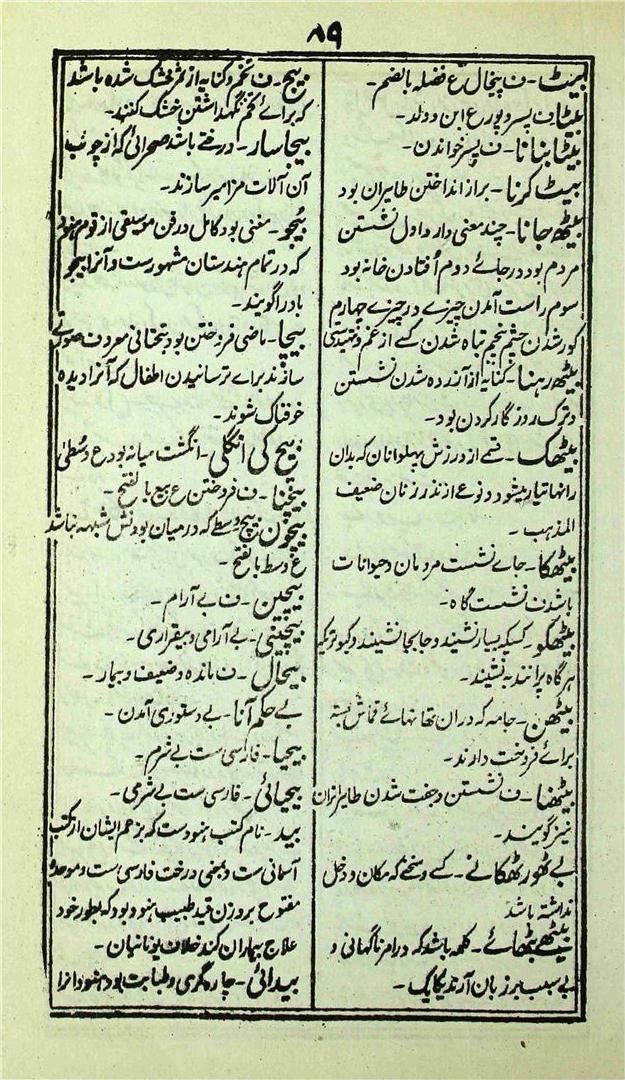 ۸۹
بیٹ۔ ف پیخال ع فضله بالضم۔
بیٹا ف پسر و پور ع ابن و ولد۔
بیٹا بنانا۔ ف پسر خواندن۔
بیٹ کرنا۔ براز انداختن طایران بود
بیٹھ جانا۔ چند معنی دارد اول نشستن
مردم بود در جائے دوم اُفتادن خانه بود
سوم راست آمدن چیزے در چیزے چهارم
کور شدن چشم پنجم تباه شدن کسے از غم و تهیدستی
بیٹھ رہنا۔ کنایه از آزرده شدن نشستن
و ترک روزگار کردن بود۔
بیٹھک۔ قسمے از ورزش پهلوانان که بدان
رانها تیار میشود و نوعے از نذر زنان ضعیف
المذهب۔
بیٹھکا۔ جاے نشست مردمان و حیوانات
باشد ف نشست گاه۔
بیٹھکو۔ کسیکه بسیار نشیند و جابجا نشیند و کبوتر که
هرگاه پرانند به نشیند۔
بیٹھن۔ جامه که دران تھانهائے قماش بسته
براے فروخت دارند۔
بیٹھنا۔ ف نشستن و جفت شدن طایر انرا
نیز گویند۔
بے ٹھور ٹھکانے۔ کسے و سخنے که مکان و دخل
نداشته باشد
بیٹھے بٹھائے۔ کلمه باشد که در امر ناگهانی و
بے سبب بر زبان آرند یکایک۔
بیج۔ ف تخم و کنایه از ثمر خشک شده باشد
که براے تخم نگهداشتن خشک کنند۔
بیجاسار۔ درختے باشد صحرائی که از چوب
آن آلات مزامیر سازند۔
بیجو۔ مغنی بود کامل در فن موسیقی از قوم هنود
که در تمام هندستان مشهورست و آنرا بیجو
باورا گویند۔
بیچا۔ ماضی فروختن بود بتحتانی معروف صورتے
سازند براے ترسانیدن اطفال که آنرا دیده
خوفناک شوند۔
بیچ کی انگلی۔ انگشت میانه بود ع وسطیٰ
بیچنا۔ ف فروختن ع بیع بالفتح۔
بیچون بیچ وسطے که درمیان بودنش شبهه نباشد
ع وسط بالفتح۔
بیچین۔ ف بے آرام۔
بیچینی۔ بے آرامی و بیقراری۔
بیحال۔ ف مانده و ضعیف و بیمار۔
بے حکم آنا۔ بے دستوری آمدن۔
بیحیا۔ فارسی ست بے شرم۔
بیحیائی۔ فارسی ست بے شرمی۔
بید۔ نام کتب هنودست که بزعم ایشان از کتب
آسمانی ست و بمعنی درخت فارسی ست و موحده
مفتوح بروزن قید طبیب هنود بود که بطور خود
علاج بیماران کند خلاف یونانیان۔
بیدائی۔ چاره گری و طبابت بود هنود انرا